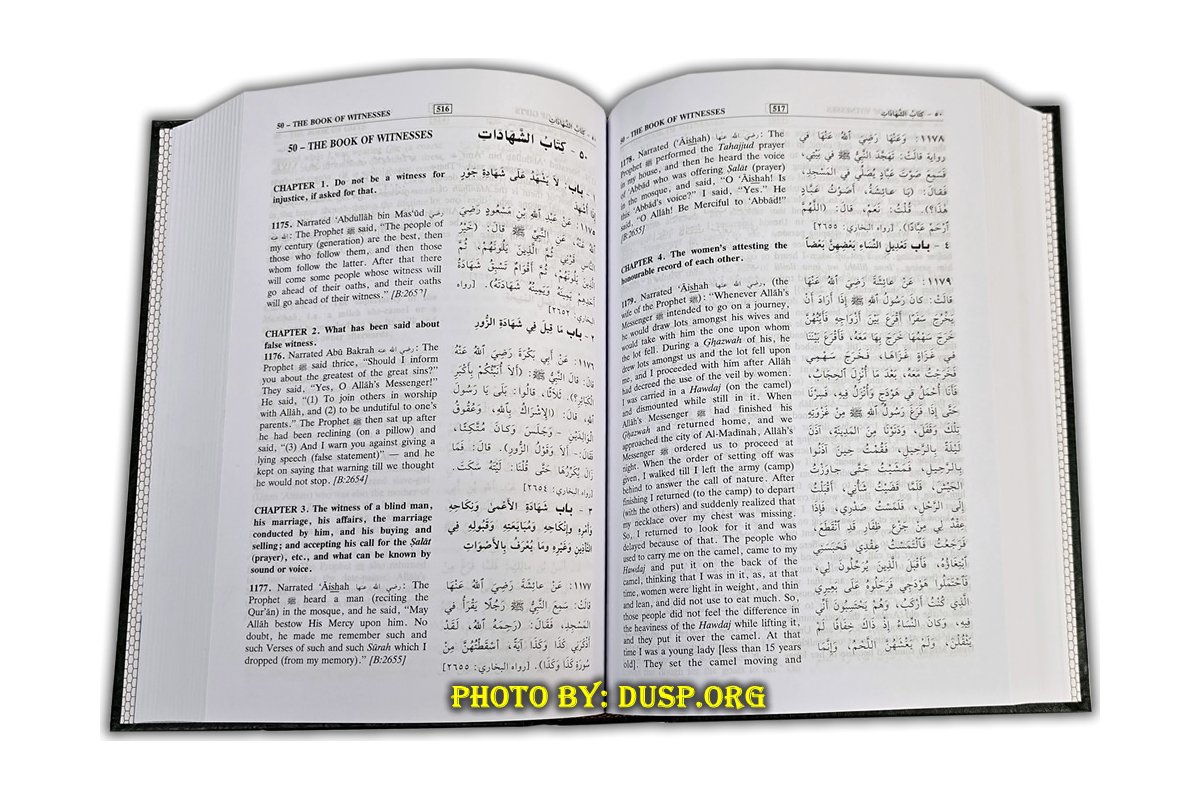 50 – THE BOOK OF WITNESSES
516
٥٠ - كتاب الشهادات
50 – THE BOOK OF WITNESSES
٥٠ – كتابُ الشَّهَادَات
CHAPTER 1. Do not be a witness for
injustice, if asked for that.
1175. Narrated ‘Abdullâh bin Mas‘ûd رضي
الله عنه: The Prophet ﷺ said, “The people of
my century (generation) are the best, then
those who follow them, and then those
whom follow the latter. After that there
will come some people whose witness will
go ahead of their oaths, and their oaths
will go ahead of their witness.” [B:2652]
CHAPTER 2. What has been said about
false witness.
1176. Narrated Abû Bakrah رضي الله عنه: The
Prophet ﷺ said thrice, “Should I inform
you about the greatest of the great sins?”
They said, “Yes, O Allâh’s Messenger!”
He said, “(1) To join others in worship
with Allâh, and (2) to be undutiful to one’s
parents.” The Prophet ﷺ then sat up after
he had been reclining (on a pillow) and
said, “(3) And I warn you against giving a
lying speech (false statement)” — and he
kept on saying that warning till we thought
he would not stop. [B:2654]
CHAPTER 3. The witness of a blind man,
his marriage, his affairs, the marriage
conducted by him, and his buying and
selling; and accepting his call for the Ṣalât
(prayer), etc., and what can be known by
sound or voice.
1177. Narrated ‘Âishah رضي الله عنها: The
Prophet ﷺ heard a man (reciting the
Qur’ân) in the mosque, and he said, “May
Allâh bestow His Mercy upon him. No
doubt, he made me remember such and
such Verses of such and such Sûrah which I
dropped (from my memory).” [B:2655]
١ - باب: لَا يَشْهَدُ عَلَى شَهَادَةِ جَورٍ
إذَا أُشْهِدَ
١١٧٥: عَنْ عَبْدِ اللهِ بْنِ مَسْعُودٍ رَضِيَ
اللهُ عَنْهُ، عَنِ النَّبِيِّ ﷺ قَالَ: (خَيْرُ
النَّاسِ قَرْنِي ثُمَّ الَّذِينَ يَلُونَهُمْ، ثُمَّ
الَّذِينَ يَلُونَهُمْ، ثُمَّ أَقْوَامٌ تَسْبِقُ شَهَادَةُ
أَحَدِهِمْ يَمِينَهُ وَيَمِينُهُ شَهَادَتَهُ). [رواه
البخاري: ٢٦٥٢]
٢ - باب مَا قِيلَ فِي شَهَادَةِ الزُّورِ
١١٧٦: عَنْ أَبِي بَكْرَةَ رَضِيَ اللهُ عَنْهُ
قَالَ: قَالَ النَّبِيُّ ﷺ: (أَلَا أُنَبِّئُكُمْ بِأَكْبَرِ
الْكَبَائِرِ؟). ثَلَاثًا، قَالُوا: بَلَى يَا رَسُولَ
اللهِ، قَالَ: (الإِشْرَاكُ بِاللهِ، وَعُقُوقُ
الْوَالِدَيْنِ - وَجَلَسَ وَكَانَ مُتَّكِئًا،
فَقَالَ - أَلَا وَقَوْلُ الزُّورِ). قَالَ: فَمَا
زَالَ يُكَرِّرُهَا حَتَّى قُلْنَا: لَيْتَهُ سَكَتَ.
[رواه البخاري: ٢٦٥٤]
٣ - باب شَهَادَةِ الأَعْمَى وَنِكَاحِهِ
وَأَمْرِهِ وَإِنْكَاحِهِ وَمُبَايَعَتِهِ وَقَبُولِهِ فِي
التَّأْذِينِ وَغَيْرِهِ وَمَا يُعْرَفُ بِالأَصْوَاتِ
١١٧٧: عَنْ عَائِشَةَ رَضِيَ اللهُ عَنْهَا
قَالَتْ: سَمِعَ النَّبِيُّ ﷺ رَجُلًا يَقْرَأُ فِي
المَسْجِدِ، فَقَالَ: (رَحِمَهُ اللهُ، لَقَدْ
أَذْكَرَنِي كَذَا وَكَذَا آيَةً، أَسْقَطْتُهُنَّ مِنْ
سُورَةِ كَذَا وَكَذَا). [رواه البخاري: ٢٦٥٥]
50 – THE BOOK OF WITNESSES
517
٥٠ - كتاب الشَّهَادَات
1178. Narrated (‘Âishah) رضي الله عنها: The
Prophet ﷺ performed the Tahajjud prayer
in my house, and then he heard the voice
of ‘Abbâd who was offering Ṣalât (prayer)
in the mosque, and said, “O ‘Âishah! Is
this ‘Abbâd’s voice?” I said, “Yes.” He
said, “O Allâh! Be Merciful to ‘Abbâd!”
[B:2655]
CHAPTER 4. The women’s attesting the
honourable record of each other.
1179. Narrated ‘Âishah رضي الله عنها, (the
wife of the Prophet ﷺ): “Whenever Allâh’s
Messenger ﷺ intended to go on a journey,
he would draw lots amongst his wives and
would take with him the one upon whom
the lot fell. During a Ghazwah of his, he
drew lots amongst us and the lot fell upon
me, and I proceeded with him after Allâh
had decreed the use of the veil by women.
I was carried in a Hawdaj (on the camel)
and dismounted while still in it. When
Allâh’s Messenger ﷺ had finished his
Ghazwah and returned home, and we
approached the city of Al-Madînah, Allâh’s
Messenger ﷺ ordered us to proceed at
night. When the order of setting off was
given, I walked till I left the army (camp)
behind to answer the call of nature. After
finishing I returned (to the camp) to depart
(with the others) and suddenly realized that
my necklace over my chest was missing.
So, I returned to look for it and was
delayed because of that. The people who
used to carry me on the camel, came to my
Hawdaj and put it on the back of the
camel, thinking that I was in it, as, at that
time, women were light in weight, and thin
and lean, and did not use to eat much. So,
those people did not feel the difference in
the heaviness of the Hawdaj while lifting it,
and they put it over the camel. At that
time I was a young lady [less than 15 years
old]. They set the camel moving and
١١٧٨: وَعَنْهَا رَضِيَ اللهُ عَنْهَا فِي
رِوَايَةٍ قَالَتْ: تَهَجَّدَ النَّبِيُّ ﷺ فِي بَيْتِي،
فَسَمِعَ صَوْتَ عَبَّادٍ يُصَلِّي فِي المَسْجِدِ،
فَقَالَ: (يَا عَائِشَةُ، أَصَوْتُ عَبَّادٍ
هَذَا؟). قُلْتُ: نَعَمْ، قَالَ: (اللَّهُمَّ
ارْحَمْ عَبَّادًا). [رواه البخاري: ٢٦٥٥]
٤ - باب تَعْدِيلِ النِّسَاءِ بَعْضِهِنَّ بَعْضاً
١١٧٩: عَنْ عَائِشَةَ رَضِيَ اللهُ عَنْهَا
قَالَتْ: كَانَ رَسُولُ اللهِ ﷺ إِذَا أَرَادَ أَنْ
يَخْرُجَ سَفَرًا أَقْرَعَ بَيْنَ أَزْوَاجِهِ فَأَيَّتُهُنَّ
خَرَجَ سَهْمُهَا خَرَجَ بِهَا مَعَهُ، فَأَقْرَعَ بَيْنَنَا
فِي غَزَاةٍ غَزَاهَا، فَخَرَجَ سَهْمِي
فَخَرَجْتُ مَعَهُ، بَعْدَ مَا أُنْزِلَ الْحِجَابُ،
فَأَنَا أُحْمَلُ فِي هَوْدَجٍ وَأُنْزَلُ فِيهِ، فَسِرْنَا
حَتَّى إِذَا فَرَغَ رَسُولُ اللهِ ﷺ مِنْ غَزْوَتِهِ
تِلْكَ وَقَفَلَ، وَدَنَوْنَا مِنَ المَدِينَةِ، آذَنَ
لَيْلَةً بِالرَّحِيلِ، فَقُمْتُ حِينَ آذَنُوا
بِالرَّحِيلِ، فَمَشَيْتُ حَتَّى جَاوَزْتُ
الجَيْشَ، فَلَمَّا قَضَيْتُ شَأْنِي، أَقْبَلْتُ
إِلَى الرَّحْلِ، فَلَمَسْتُ صَدْرِي، فَإِذَا
عِقْدٌ لِي مِنْ جَزْعِ ظَفَارِ قَدِ انْقَطَعَ،
فَرَجَعْتُ فَالْتَمَسْتُ عِقْدِي فَحَبَسَنِي
ابْتِغَاؤُهُ، فَأَقْبَلَ الَّذِينَ يُرَحِّلُونَ لِي،
فَاحْتَمَلُوا هَوْدَجِي فَرَحَلُوهُ عَلَى بَعِيرِي
الَّذِي كُنْتُ أَرْكَبُ، وَهُمْ يَحْسِبُونَ أَنِّي
فِيهِ، وَكَانَ النِّسَاءُ إِذْ ذَاكَ خِفَافًا لَمْ
يَثْقُلْنَ، وَلَمْ يَغْشَهُنَّ اللَّحْمُ، وَإِنَّمَا
PHOTO BY: DUSP.ORG